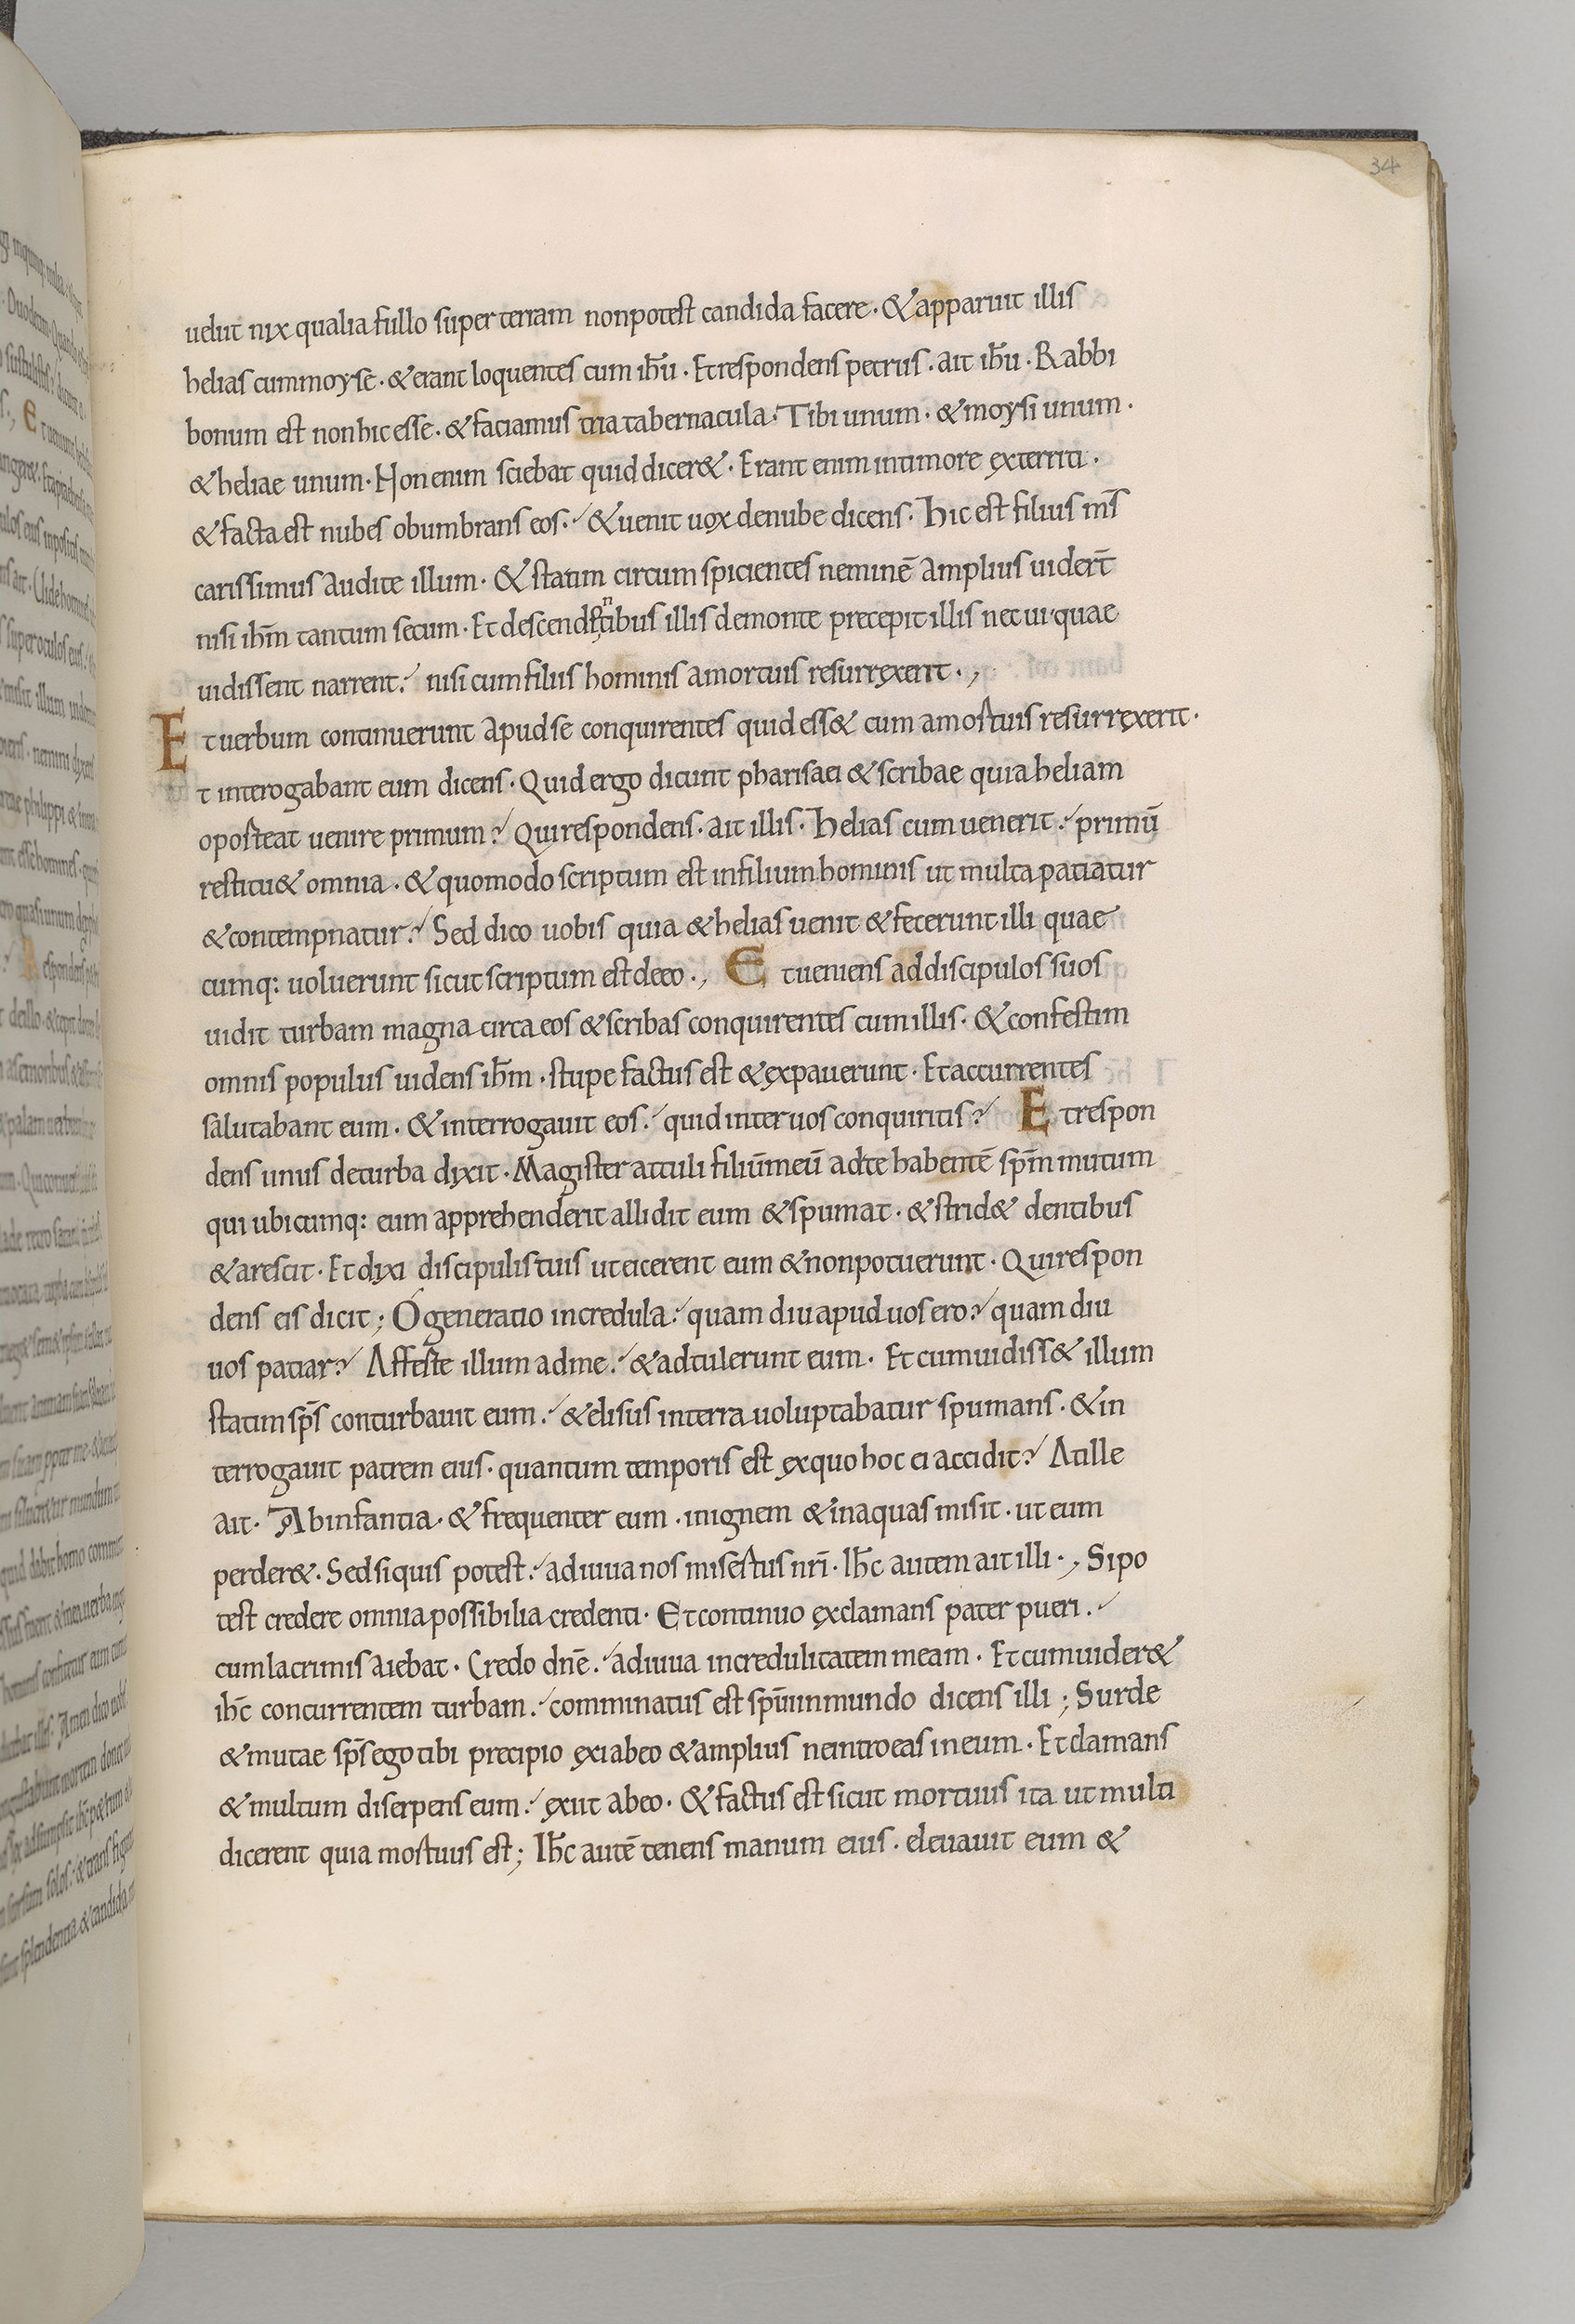 34
uelut nix qualia fullo super terram non potest candida facere · & apparuit illis
helias cum moyse · & erant loquentes cum ihu̅ · Et respondens petrus · ait ihu̅ · Rabbi
bonum est non hic esse · & faciamus tria tabernacula · Tibi unum · & moysi unum ·
& heliae unum · Non enim sciebat quid dicer& · Erant enim in timore exterriti ·
& facta est nubes obumbrans eos · & uenit uox de nube dicens · Hic est filius ms̅
carissimus audite illum · & statim circumspicientes nemine̅ amplius uidert̅
nisi ihm̅ tantum secum · Et descendentibus illis de monte precepit illis ne cui quae
uidissent narrent · nisi cum filius hominis a mortuis resurrexerit ·,
Et uerbum continuerunt apud se conquirentes quid ess& cum a mortuis resurrexerit ·
t interrogabant eum dicens · Quid ergo dicunt pharisaei & scribae quia heliam
oporteat uenire primum? Qui respondens · ait illis · Helias cum uenerit · primu̅
restitu& omnia · & quomodo scriptum est in filium hominis ut multa patiatur
& contempnatur? Sed dico uobis quia & helias uenit & fecerunt illi quae
cumq: uoluerunt sicut scriptum est de eo ·, Et ueniens ad discipulos suos
uidit turbam magna circa eos & scribas conquirentes cum illis · & confestim
omnis populus uidens ihm̅ · stupefactus est & expauerunt · Et accurrentes
salutabant eum · & interrogauit eos · quid inter uos conquiritis? Et respon
dens unus de turba dixit · Magister attuli filiu̅ meu̅ ad te habente̅ spm̅ mutum
qui ubicumq: eum apprehenderit allidit eum & spumat · & strid& dentibus
& arescit · Et dixi discipulis tuis ut eicerent eum & non potuerunt · Qui respon
dens eis dicit ; Ó generatio incredula · quam diu apud uos ero? quam diu
uos patiar? Afferte illum ad me · & adtulerunt eum · Et cum uidiss& illum
statim sps̅ conturbauit eum · & elisus in terra uoluptabatur spumans · & in
terrogauit patrem eius · quantum temporis est ex quo hoc ei accidit? At ille
ait · Ab infantia · & frequenter eum · in ignem & in aquas misit · ut eum
perder& · Sed si quis potest · adiuua nos misertus nri̅ · Ihc̅ autem ait illi ·, Si po
test credere omnia possibilia credenti · Et continuo exclamans pater pueri ·
cum lacrimis aiebat · Credo dne̅ · adiuua incredulitatem meam · Et cum uider&
ihc̅ concurrentem turbam · comminatus est spu̅i inmundo dicens illi ; Surde
& mutae sps̅ ego tibi precipio exi ab eo & amplius ne introeas in eum · Et clamans
& multum discerpens eum · exiit ab eo · & factus est sicut mortuus ita ut multi
dicerent quia mortuus est ; Ihc̅ aute̅ tenens manum eius · eleuauit eum &